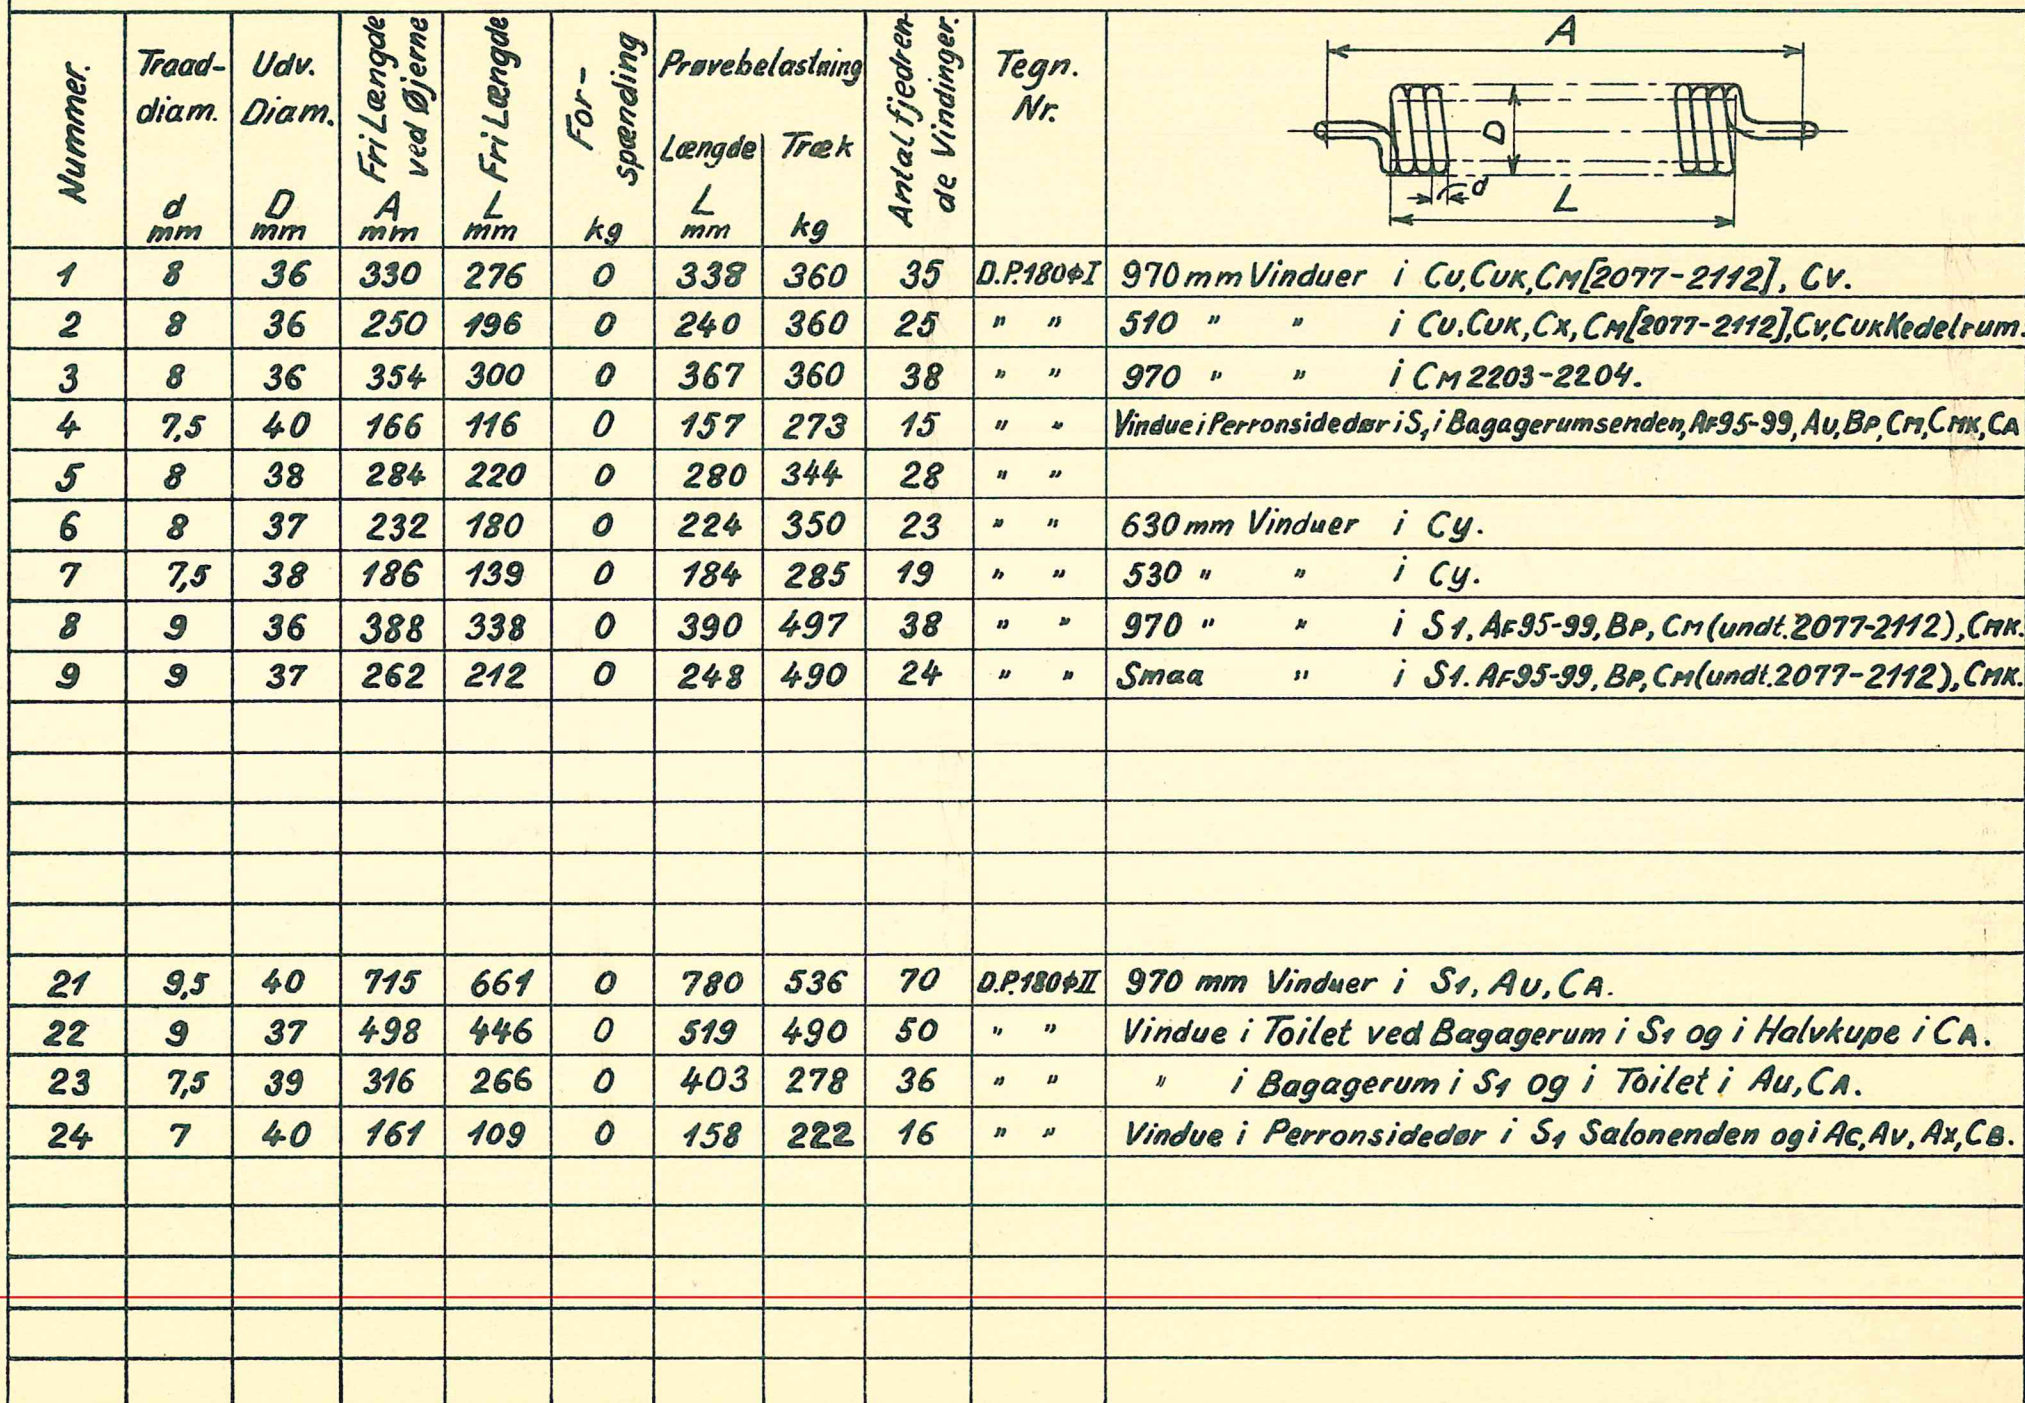 Nummer. Traad-diam. d mm Udv. Diam. D mm Fri Længde ved Øjerne A mm Fri Længde L mm For-spænding kg Prøvebelastning Længde L mm Træk kg Antal fjedren-de Vindinger. Tegn. Nr.
A
D
d
L
1 8 36 330 276 0 338 360 35 D.P.180ϕI 970 mm Vinduer i CU, CUK, CM [2077-2112], CV.
2 8 36 250 196 0 240 360 25 " " 510 " " i CU. CUK, CX, CM [2077-2112], CV, CUK Kedelrum.
3 8 36 354 300 0 367 360 38 " " 970 " " i CM 2203-2204.
4 7,5 40 166 116 0 157 273 15 " " Vindue i Perronsidedør i S1, i Bagagerumsenden, AF95-99, AU, BP, CM, CMK, CA
5 8 38 284 220 0 280 344 28 " "
6 8 37 232 180 0 224 350 23 " " 630 mm Vinduer i Cy.
7 7,5 38 186 139 0 184 285 19 " " 530 " " i Cy.
8 9 36 388 338 0 390 497 38 " " 970 " " i S1, AF95-99, BP, CM (undt. 2077-2112), CMK.
9 9 37 262 212 0 248 490 24 " " Smaa " i S1. AF95-99, BP, CM (undt. 2077-2112), CMK.
21 9,5 40 715 661 0 780 536 70 D.P.180ϕII 970 mm Vinduer i S1, AU, CA.
22 9 37 498 446 0 519 490 50 " " Vindue i Toilet ved Bagagerum i S1 og i Halvkupe i CA.
23 7,5 39 316 266 0 403 278 36 " " " i Bagagerum i S1 og i Toilet i AU, CA.
24 7 40 161 109 0 158 222 16 " " Vindue i Perronsidedør i S1 Salonenden og i AC, AV, AX, CB.